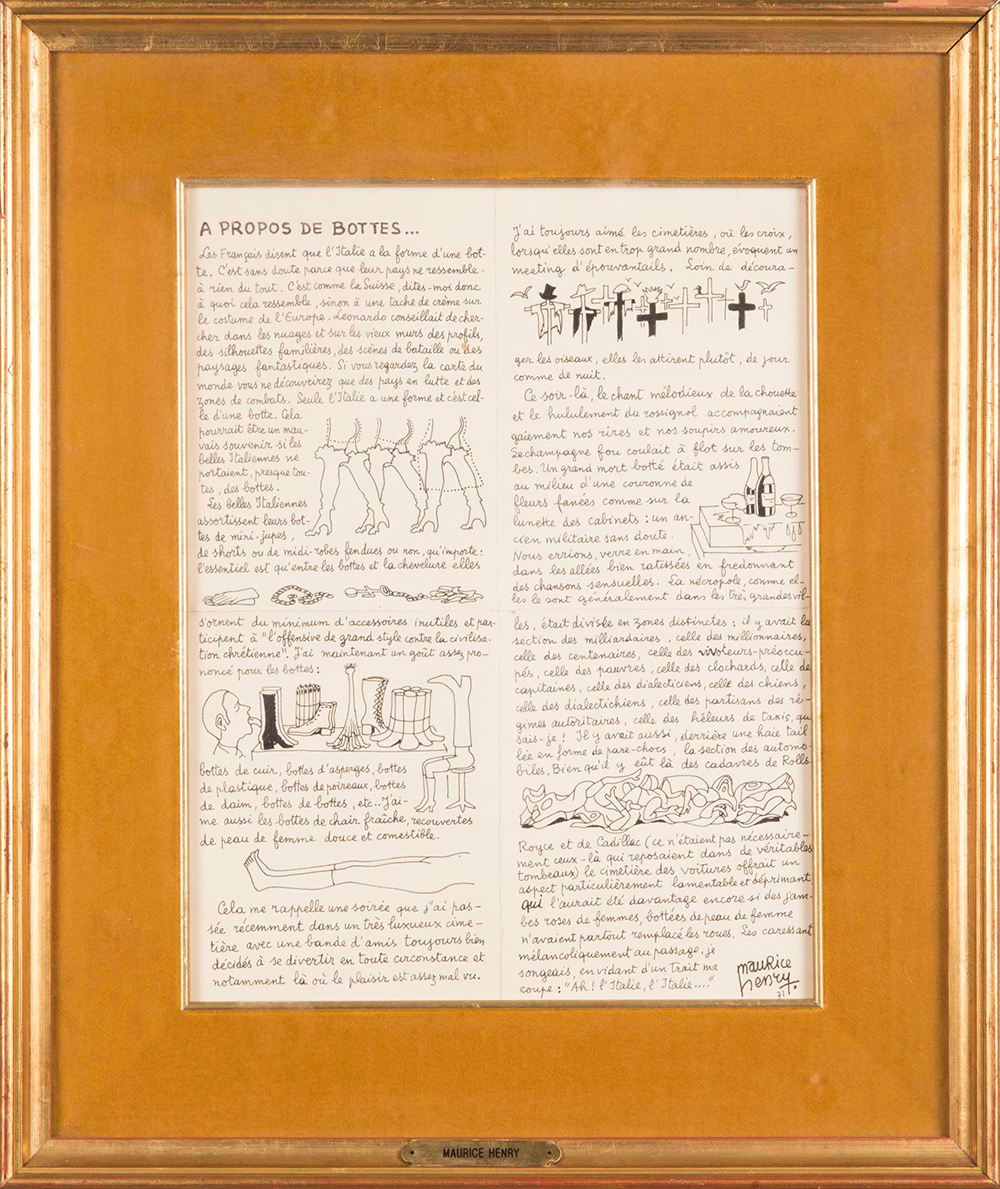 A PROPOS DE BOTTES...
Les Français disent que l'Italie a la forme d'une bot-
te. C'est sans doute parce que leur pays ne ressemble
à rien du tout. C'est comme la Suisse, dites-moi donc
à quoi cela ressemble, sinon à une tache de crème sur
le costume de l'Europe. Leonardo conseillait de cher-
cher dans les nuages et sur les vieux murs des profils,
des silhouettes familières, des scènes de bataille ou des
paysages fantastiques. Si vous regardez la carte du
monde vous ne découvrirez que des pays en lutte et des
zones de combats. Seule l'Italie a une forme et c'est cel-
le d'une botte. Cela
pourrait être un mau-
vais souvenir si les
belles Italiennes ne
portaient, presque tou-
tes, des bottes.
Les belles Italiennes
assortissent leurs bot-
tes de mini-jupes,
de shorts ou de midi-robes fendues ou non, qu'importe:
l'essentiel est qu'entre les bottes et la chevelure elles
s'ornent du minimum d'accessoires inutiles et par-
ticipent à "l'offensive de grand style contre la civilisa-
tion chrétienne". J'ai maintenant un goût assez pro-
noncé pour les bottes:
bottes de cuir, bottes d'asperges, bottes
de plastique, bottes de poireaux, bottes
de daim, bottes de bottes, etc.. J'ai-
me aussi les bottes de chair fraîche, recouvertes
de peau de femme douce et comestible.
Cela me rappelle une soirée que j'ai pas-
sée récemment dans un très luxueux cime-
tière avec une bande d'amis toujours bien
décidés à se divertir en toute circonstance et
notamment là où le plaisir est assez mal vu.
J'ai toujours aimé les cimetières, où les croix,
lorsqu'elles sont en trop grand nombre, évoquent un
meeting d'épouvantails. Loin de découra-
ger les oiseaux, elles les attirent plutôt, de jour
comme de nuit.
Ce soir-là, le chant mélodieux de la chouette
et le hululement du rossignol accompagnaient
gaiement nos rires et nos soupirs amoureux.
Le champagne fou coulait à flot sur les tom-
bes. Un grand mort botté était assis
au milieu d'une couronne de
fleurs fanées comme sur la
lunette des cabinets: un an-
cien militaire sans doute.
Nous errions, verre en main,
dans les allées bien ratissées en fredonnant
des chansons sensuelles. La nécropole, comme el-
les le sont généralement dans les très grandes vil-
les, était divisée en zones distinctes: il y avait la
section des milliardaires, celle des millionnaires,
celle des centenaires, celle des vivoteurs-préoccu-
pés, celle des pauvres, celle des clochards, celle de
capitaines, celle des dialecticiens, celle des chiens,
celle des dialectichiens, celle des partisans des ré-
gimes autoritaires, celle des héleurs de taxis, que
sais-je! Il y avait aussi, derrière une haie tail
lée en forme de pare-chocs, la section des automo-
biles. Bien qu'il y eût là des cadavres de Rolls
Royce et de Cadillac (ce n'étaient pas nécessaire-
ment ceux-là qui reposaient dans de véritables
tombeaux) le cimetière des voitures offrait un
aspect particulièrement lamentable et déprimant
qui l'aurait été davantage encore si des jam-
bes roses de femmes, bottées de peau de femme
n'avaient partout remplacé les roues. Les caressant
mélancoliquement au passage, je
songeais, en vidant d'un trait ma
coupe: "Ah! l'Italie, l'Italie...."
maurice
henry.
71
MAURICE HENRY